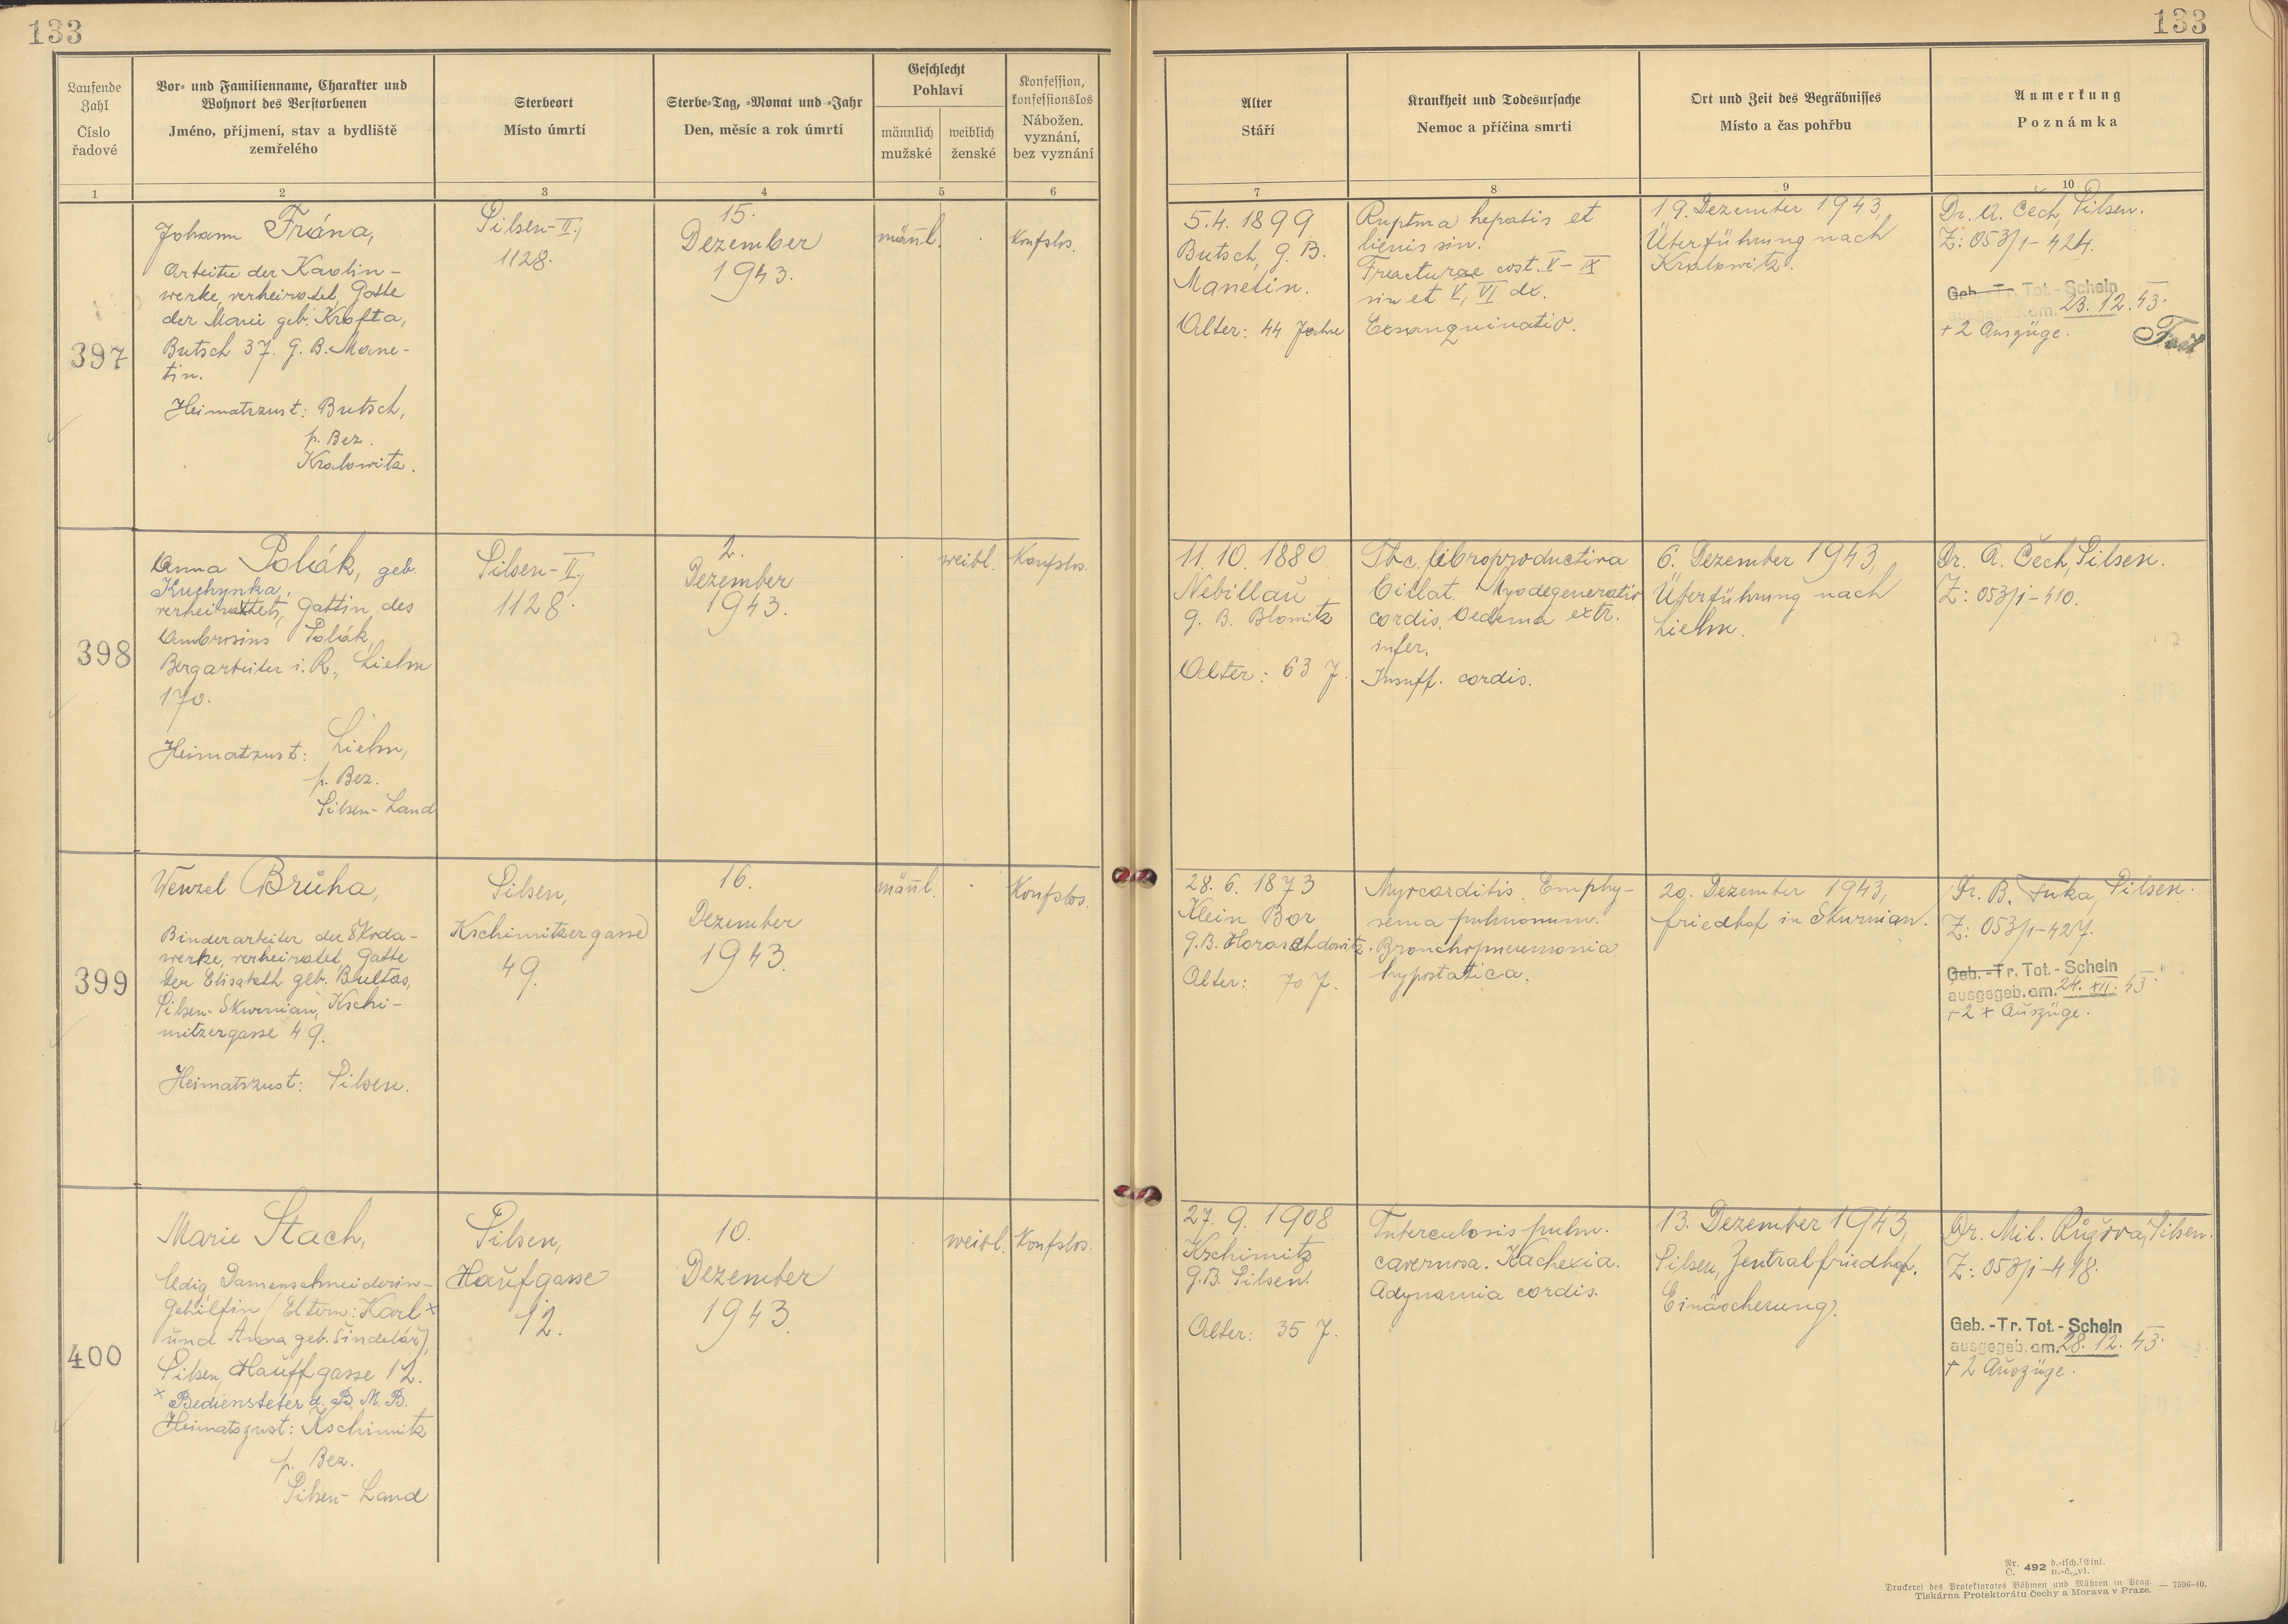 133
133
Laufende Zahl
Číslo řadové
Vor- und Familienname, Charakter und Wohnort des Verstorbenen
Jméno, příjmení, stav a bydliště zemřelého
Sterbeort
Místo úmrtí
Sterbe-Tag, -Monat und -Jahr
Den, měsíc a rok úmrtí
Geschlecht
Pohlaví
männlich
mužské
weiblich
ženské
Konfession, konfessionslos
Nábožen. vyznání, bez vyznání
Alter
Stáří
Krankheit und Todesursache
Nemoc a příčina smrti
Ort und Zeit des Begräbnisses
Místo a čas pohřbu
Anmerkung
Poznámka
1
2
3
4
5
6
7
8
9
10
397
Johann Frána,
Arbeiter der Kaolin-
werke, verheiratet, Gatte
der Marie geb. Krofta,
Butsch 37. G. B. Mane-
tin.
Heimatzust: Butsch,
p. Bez.
Kralowitz.
Pilsen-II.,
1128.
15.
Dezember
1943.
männl.
Konfslos.
5.4. 1899
Butsch, G. B.
Manetin.
Alter: 44 Jahre
Ruptura hepatis et
lienis sin.
Fracturae cost. V-IX
sin et V, VI dx.
Exsanguinatio.
19. Dezember 1943,
Überführung nach
Kralowitz.
Dr. A. Čech, Pilsen.
Z: 053/1-424.
Geb.-Tr. Tot.-Schein
ausgegeb. am. 23. 12. 43.
+ 2 Auszüge.
398
Anna Polák, geb.
Kuchynka,
verheiratet, Gattin des
Ambrosius Polák,
Bergarbeiter i. R., Lichn
170.
Heimatzust: Lichn,
p. Bez.
Pilsen-Land
Pilsen-II.,
1128.
2.
Dezember
1943.
weibl.
Konfslos.
11. 10. 1880
Nebillau
G. B. Blowitz
Alter: 63 J.
Tbc. fibroproductiva
billat. Myodegeneratio
cordis. Oedema extr.
infer.
Insuff. cordis.
6. Dezember 1943,
Überführung nach
Lichn.
Dr. A. Čech, Pilsen.
Z: 053/1-410.
399
Wenzel Brůha,
Binderarbeiter der Škoda-
werke, verheiratet, Gatte
der Elisabeth geb. Bultas,
Pilsen-Skwrnian, Kschi-
mitzergasse 49.
Heimatszust: Pilsen.
Pilsen,
Kschimitzergasse
49.
16.
Dezember
1943.
männl.
Konfslos.
28. 6. 1873
Klein Bor
G.B. Horaschdowitz.
Alter: 70 J.
Myocarditis. Emphy-
sema pulmonum.
Bronchopneumonia
hypostatica.
20. Dezember 1943,
Friedhof in Skurnian.
Dr. B. Fuka, Pilsen.
Z: 053/1-427.
Geb.-Tr. Tot.-Schein
ausgegeb. am. 24. XII. 43.
+ 2 x Auszüge.
400
Marie Stach,
ledig, Damenschneiderin-
Gehilfin (Eltern: Karl x
und Anna geb. Šindelář),
Pilsen, Hauffgasse 12.
x Bediensteter d. B. M. B.
Heimatszust: Kschimitz
p. Bez.
Pilsen-Land
Pilsen,
Haufgasse
12.
10.
Dezember
1943.
weibl.
Konfslos.
27. 9. 1908
Kschimitz
G.B. Pilsen.
Alter: 35 J.
Tuberculosis pulm.
cavernosa. Kachexia.
Adynamia cordis.
13. Dezember 1943,
Pilsen, Zentralfriedhof.
Einäscherung.
Dr. Mil. Růžova, Pilsen.
Z: 053/1-418.
Geb.-Tr. Tot.-Schein
ausgegeb. am. 28. 12. 43.
+ 2 Auszüge.
Nr. Č. 492 d.-tsch. Einl. n.-č. vl.
Druckerei des Protektorates Böhmen und Mähren in Prag. — 7596-40.
Tiskárna Protektorátu Čechy a Morava v Praze.